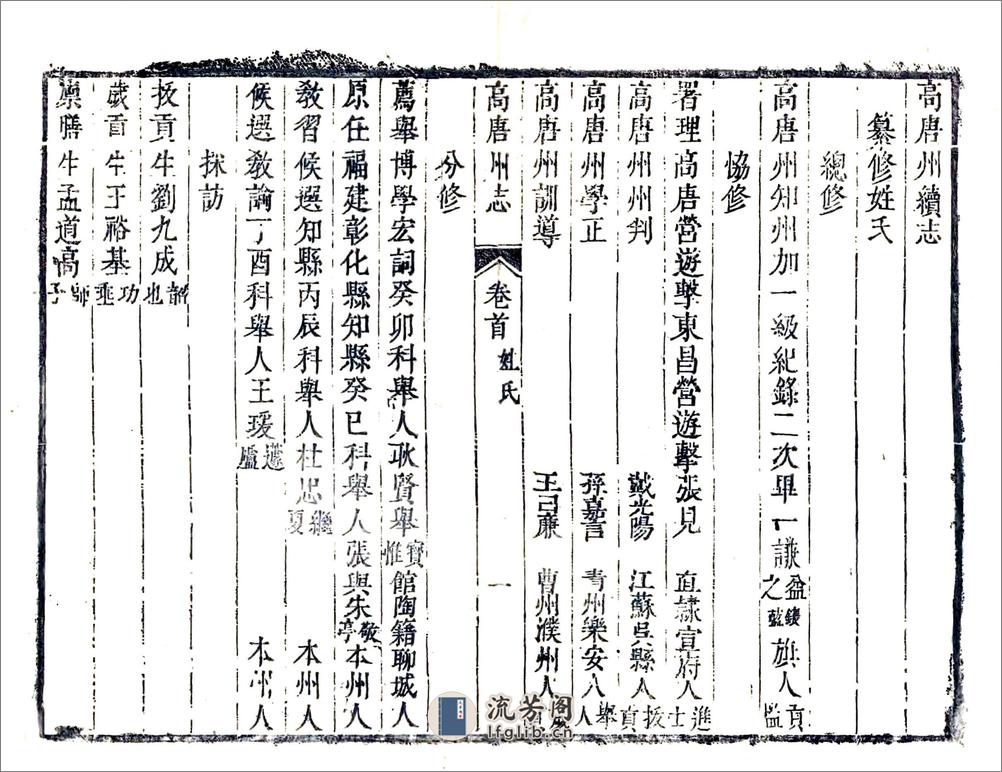 高唐州續志
纂修姓氏
總修
高唐州知州加一級紀錄二次畢一謙益之 旗人貢監
協修
署理高唐營遊擊東昌營遊擊張見 直隸宣府人進士
高唐州州判 戴光陽 江蘇吳縣人拔貢
高唐州學正 孫嘉言 青州樂安人舉人
高唐州訓導 王己廉 曹州濮州人
高唐州志 卷首 姓氏 一
分修
薦舉博學宏詞癸卯科舉人耿賢舉賓惟 館陶籍聊城人
原任福建彰化縣知縣癸巳科舉人張與朱敬亭 本州人
教習候選知縣丙辰科舉人杜忠繼夏 本州人
候選教諭丁酉科舉人王瑗蘧廬 本州人
採訪
拔貢生劉九成韶也
歲貢生王裕基功垂
廩膳生孟道高師子
流芳阁
lfglib.cn